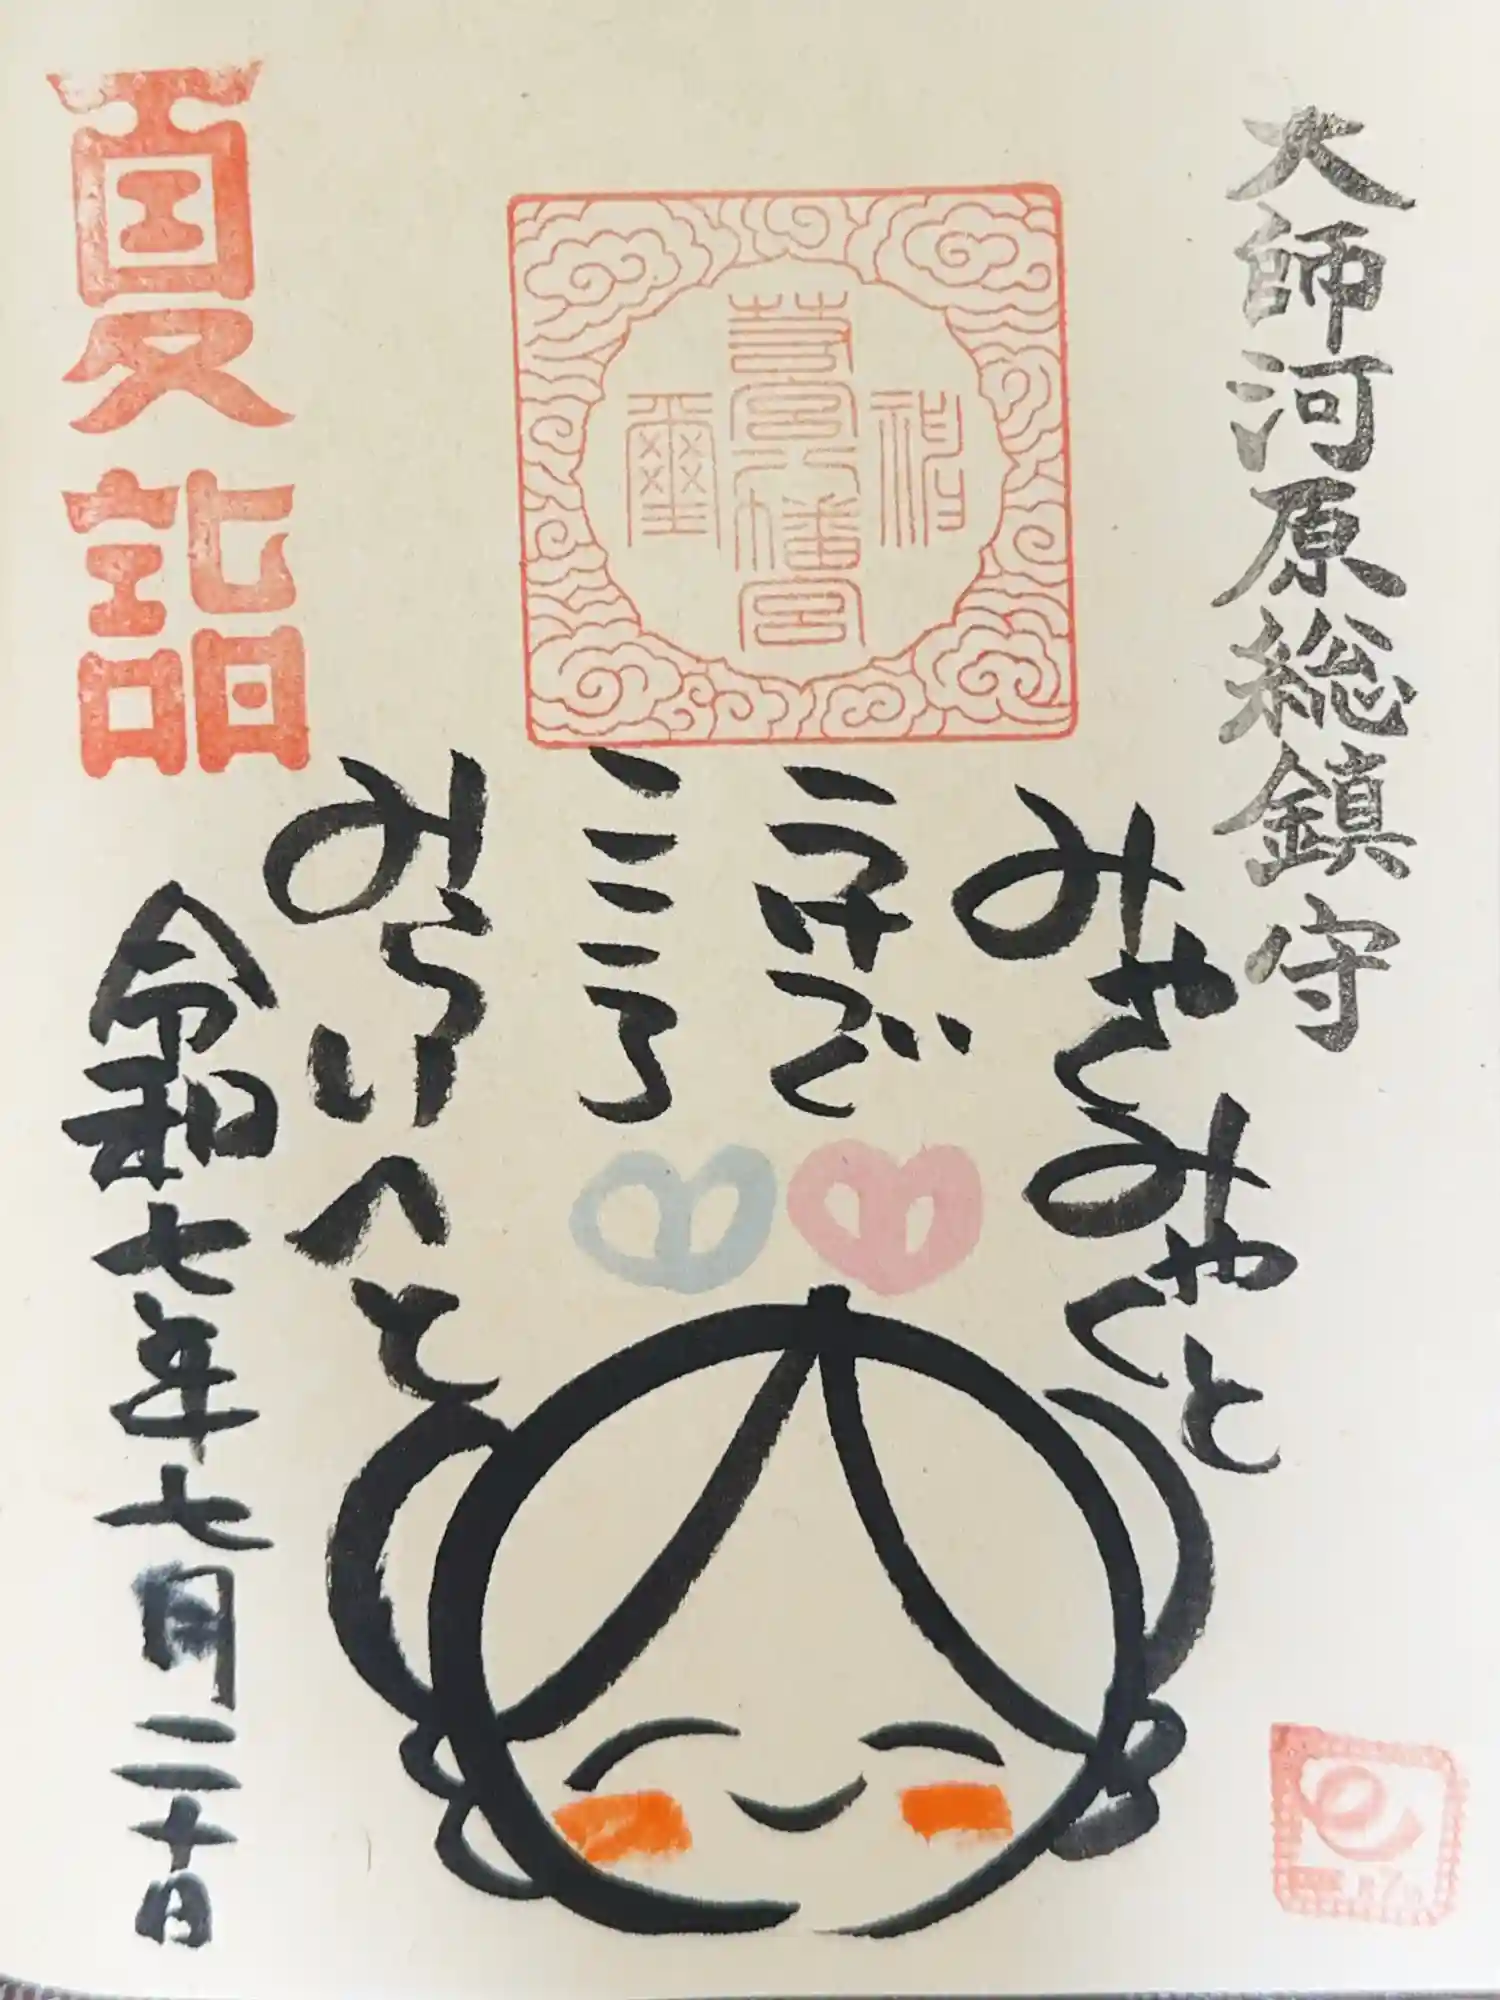 大師河原総鎮守
若宮八幡宮
みやくみやくと
うけつぐ
こころ
みらいへと
夏詣
令和七年七月二十日